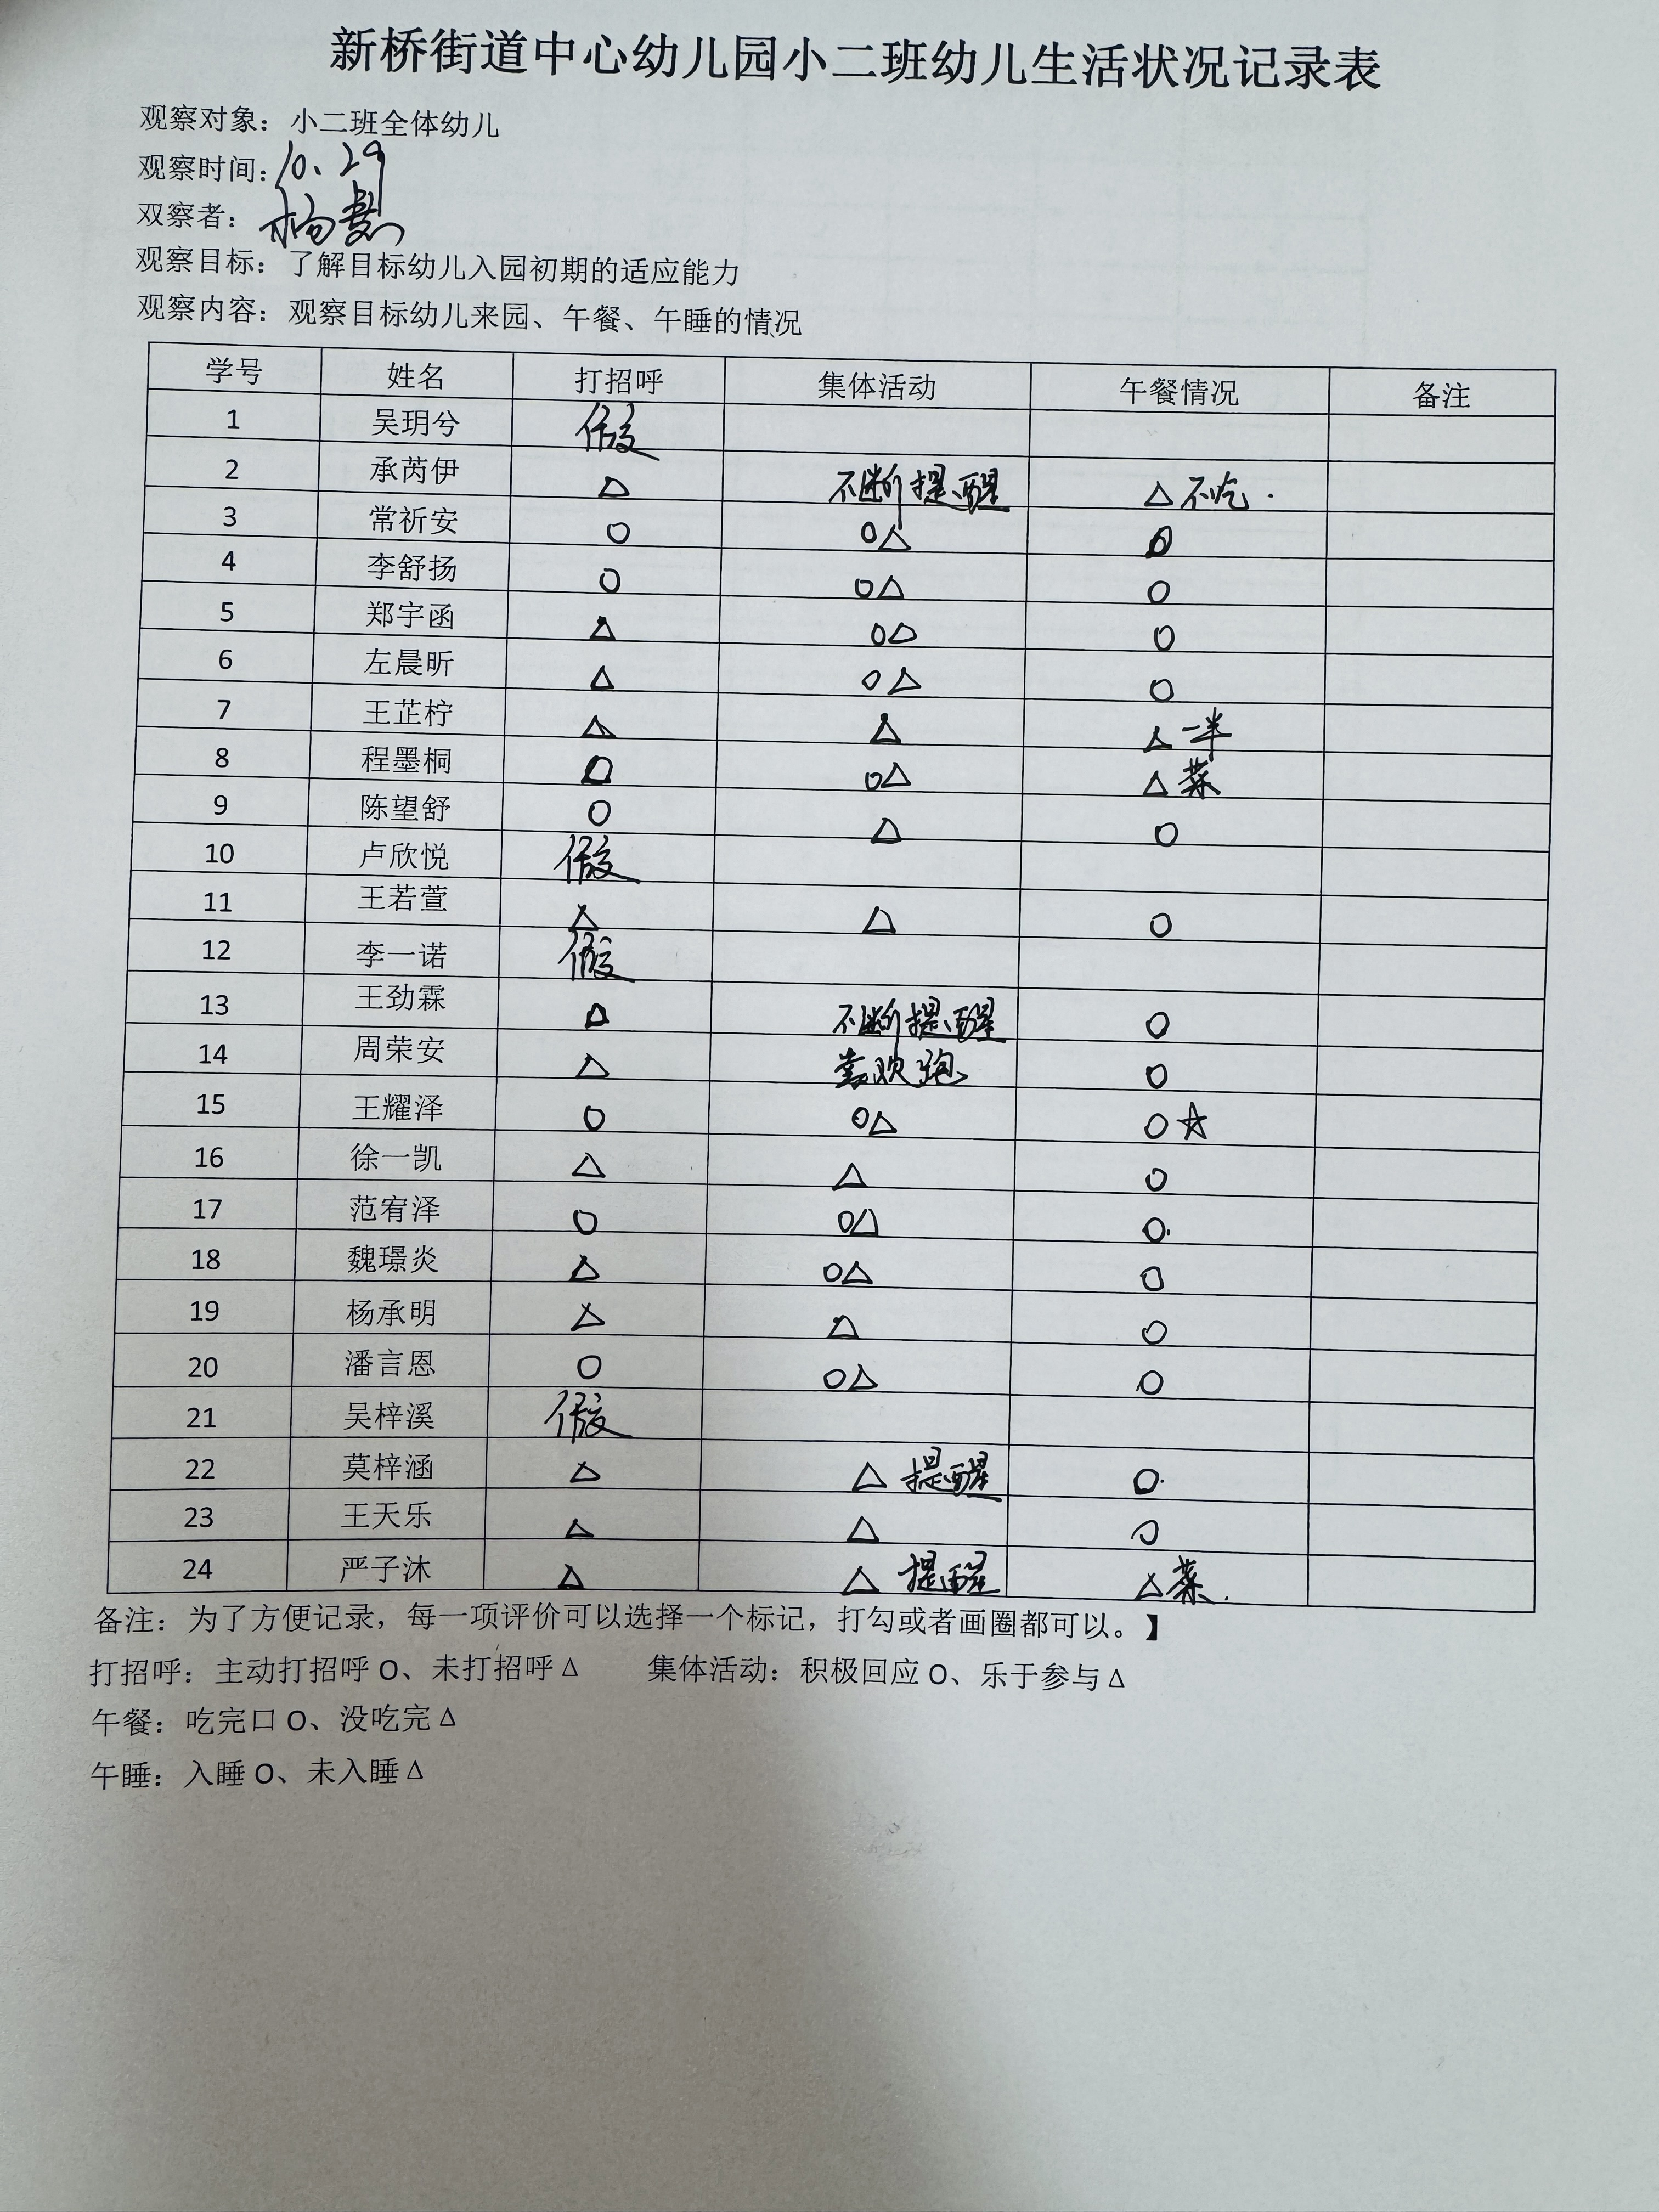 新桥街道中心幼儿园小二班幼儿生活状况记录表
观察对象：小二班全体幼儿
观察时间：10、29
双察者：杨
观察目标：了解目标幼儿入园初期的适应能力
观察内容：观察目标幼儿来园、午餐、午睡的情况
学号 姓名 打招呼 集体活动 午餐情况 备注
1 吴玥兮 假
2 承芮伊 △ 不断提醒 △不吃.
3 常祈安 ○ ○△ ○
4 李舒扬 ○ ○△ ○
5 郑宇函 △ ○△ ○
6 左晨昕 △ ○△ ○
7 王芷柠 △ △ △一半
8 程墨桐 ○△ △菜
9 陈望舒 ○ △ ○
10 卢欣悦 假
11 王若萱 △ △ ○
12 李一诺 假
13 王劲霖 △ 不断提醒 ○
14 周荣安 △ 喜欢跑 ○
15 王耀泽 ○ ○△ ○☆
16 徐一凯 △ △ ○
17 范宥泽 ○ ○△ ○.
18 魏璟炎 △ ○△ ○
19 杨承明 △ △ ○
20 潘言恩 ○ ○△ ○
21 吴梓溪 假
22 莫梓涵 △ △ 提醒 ○.
23 王天乐 △ △ ○
24 严子沐 △ △ 提醒 △菜.
备注：为了方便记录，每一项评价可以选择一个标记，打勾或者画圈都可以。】
打招呼：主动打招呼 O、未打招呼 Δ 集体活动：积极回应 O、乐于参与 Δ
午餐：吃完口 O、没吃完 Δ
午睡：入睡 O、未入睡 Δ